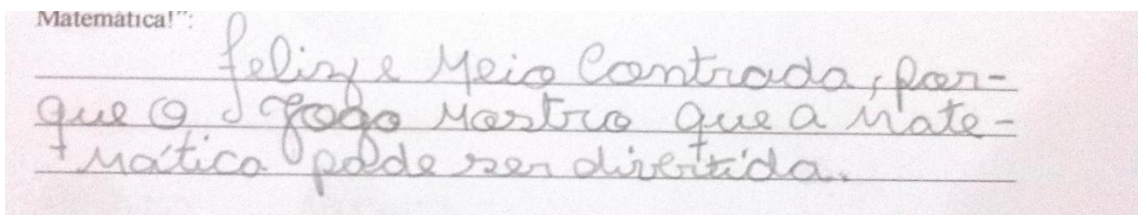 Matemática!":
feliz e Meio Contrada, por-
que o Jogo Mostra que a mate-
mática pode ser divertida.